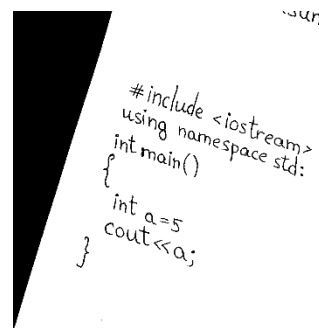 #include <iostream>
using namespace std:
int main()
{
int a=5
cout<<a;
}